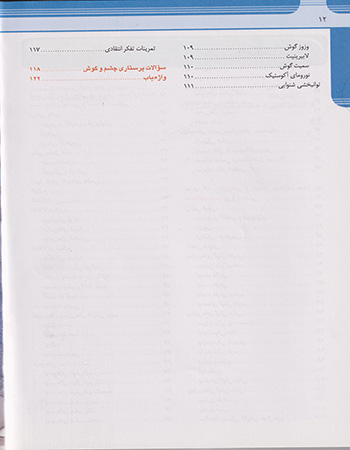 ۱۲
وزوز گوش ........ ۱۰۹
لابیرینتیت ........ ۱۰۹
سمیت گوش ........ ۱۱۰
نورومای آکوستیک ........ ۱۱۰
توانبخشی شنوایی ........ ۱۱۱
تمرینات تفکر انتقادی ........ ۱۱۷
سؤالات پرستاری چشم و گوش ........ ۱۱۸
واژه‌یاب ........ ۱۲۲